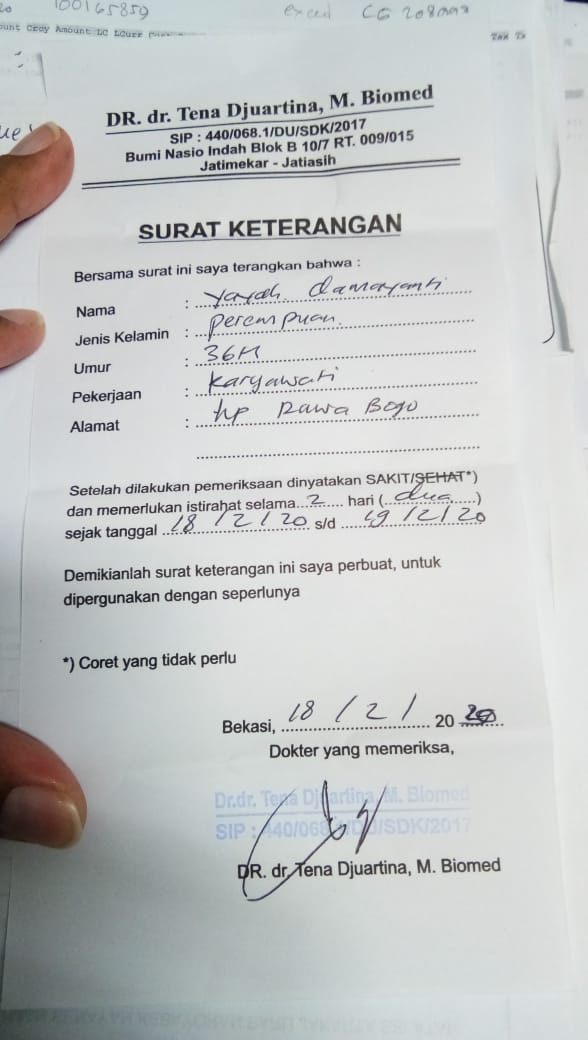 100165859
exceed CG 208
ount Crcy Amount LC LCurr
Tax
DR. dr. Tena Djuartina, M. Biomed
SIP : 440/068.1/DU/SDK/2017
Bumi Nasio Indah Blok B 10/7 RT. 009/015
Jatimekar - Jatiasih
SURAT KETERANGAN
Bersama surat ini saya terangkan bahwa :
Nama : Yayah Damayanti
Jenis Kelamin : perempuan.
Umur : 36H
Pekerjaan : Karyawati
Alamat : hp Rawa Bogo
Setelah dilakukan pemeriksaan dinyatakan SAKIT/SEHAT*)
dan memerlukan istirahat selama 2 hari (dua)
sejak tanggal 18/2/20 s/d 19/2/20
Demikianlah surat keterangan ini saya perbuat, untuk
dipergunakan dengan seperlunya
*) Coret yang tidak perlu
Bekasi, 18/2/ 2020
Dokter yang memeriksa,
Dr.dr. Tena Djuartina, M. Biomed
SIP : 440/068.1/DU/SDK/2017
DR. dr. Tena Djuartina, M. Biomed